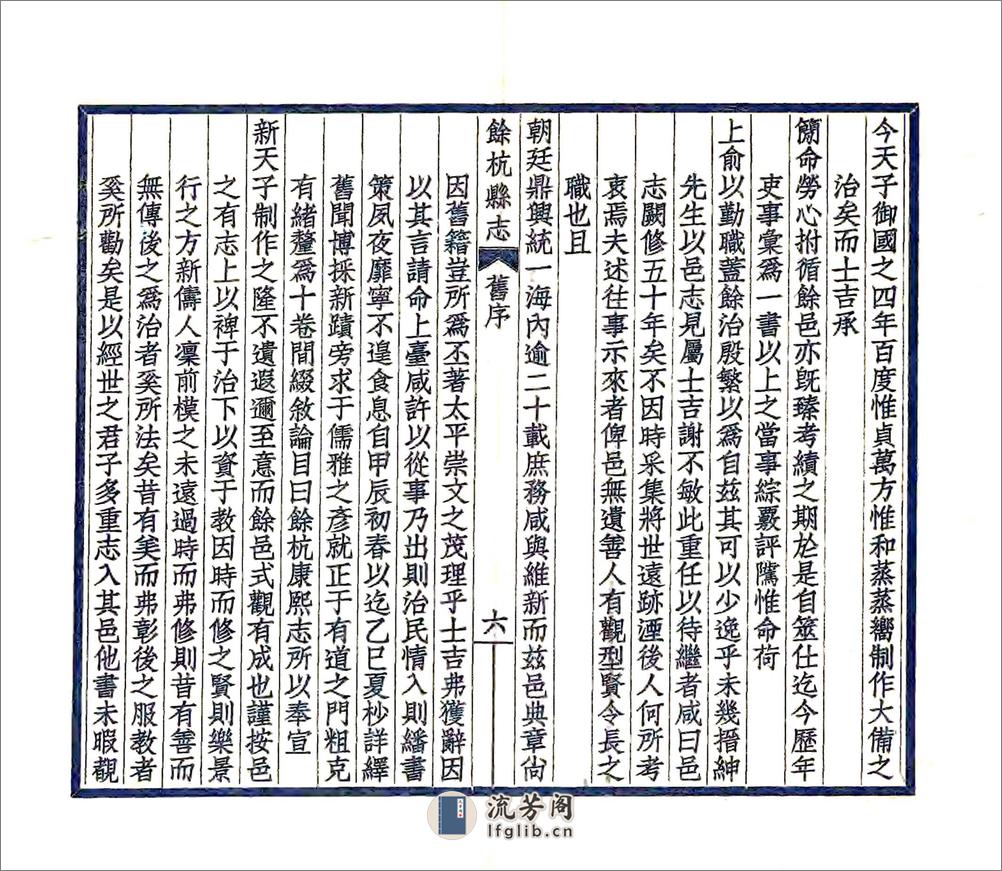 今天子御國之四年百度惟貞萬方惟和蒸蒸嚮制作大備之
治矣而士吉承
簡命勞心拊循餘邑亦既臻考績之期於是自筮仕迄今歷年
吏事彙爲一書以上之當事綜覈評隲惟命荷
上俞以勤職蓋餘治殷繁以爲自茲其可以少逸乎未幾搢紳
先生以邑志見屬士吉謝不敏此重任以待繼者咸曰邑
志闕修五十年矣不因時采集將世遠跡湮後人何所考
衷焉夫述往事示來者俾邑無遺善人有觀型賢令長之
職也且
朝廷鼎興統一海內逾二十載庶務咸與維新而茲邑典章尙
餘杭縣志
舊序
六
因舊籍豈所爲丕著太平崇文之茂理乎士吉弗獲辭因
以其言請命上臺咸許以從事乃出則治民情入則繙書
策夙夜靡寧不遑食息自甲辰初春以迄乙巳夏杪詳繹
舊聞博採新蹟旁求于儒雅之彥就正于有道之門粗克
有緒釐爲十卷間綴敘論目曰餘杭康熙志所以奉宣
新天子制作之隆不遺遐邇至意而餘邑式觀有成也謹按邑
之有志上以裨于治下以資于教因時而修之賢則樂景
行之方新儔人凜前模之未遠過時而弗修則昔有善而
無傳後之爲治者奚所法矣昔有美而弗彰後之服教者
奚所勸矣是以經世之君子多重志入其邑他書未暇觀
流芳阁
lfglib.cn